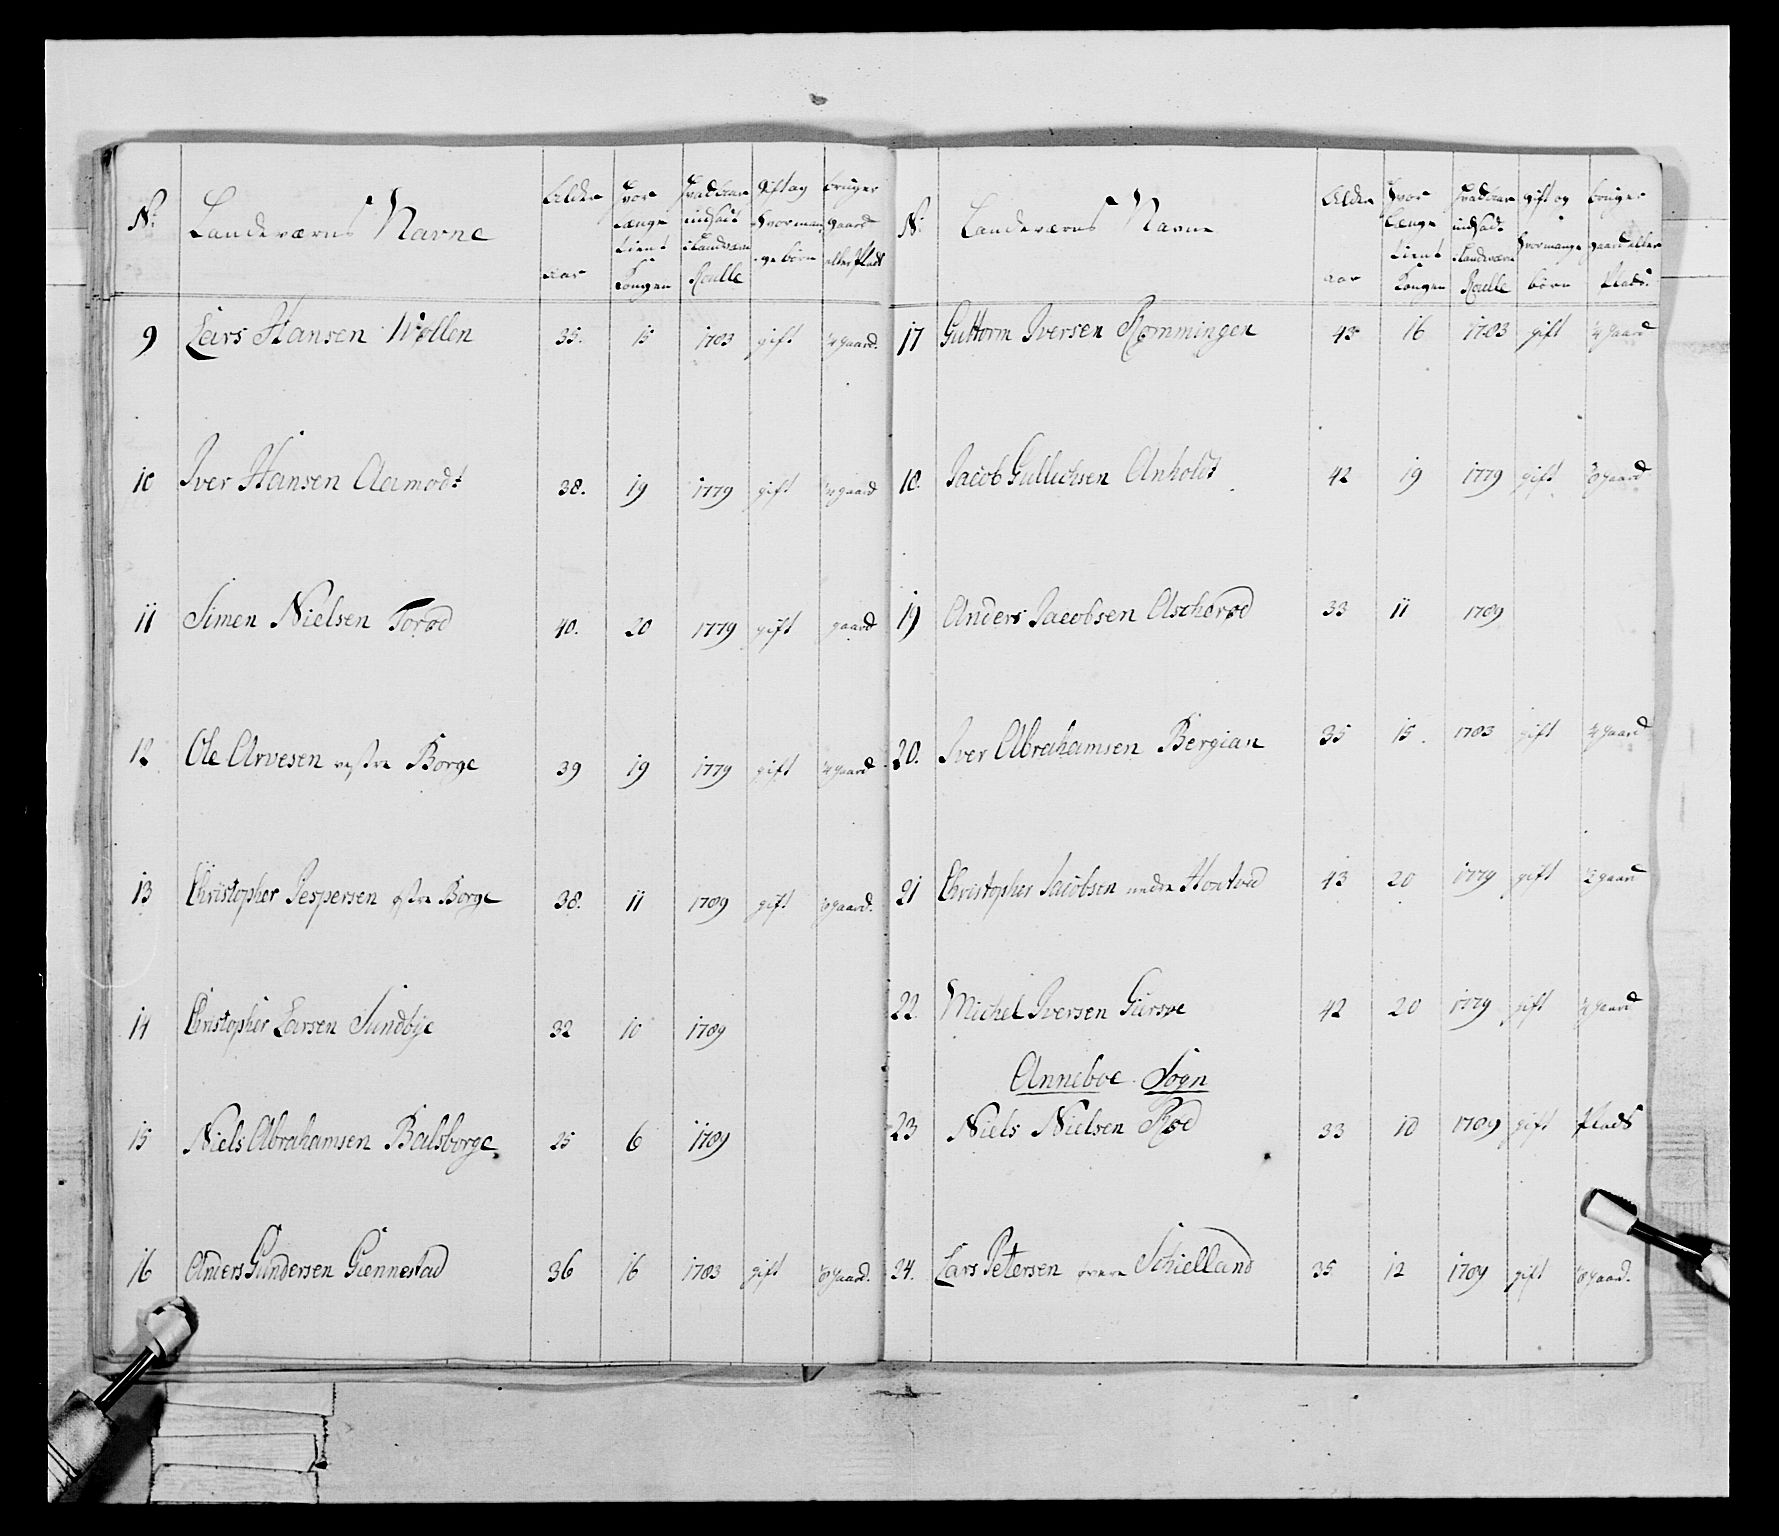 No
Landeværns Navne
Alder
aar
hvor
længe
tient
Kongen
hvad aar
indsadt
i Landværn
Roulle
gift og
hvor man-
ge børn
bruger
gaard
eller Plads
9 Lars Hansen Wollen 35. 15 1783 gift 1/4 gaard.
10 Iver Hansen Aamodt 38. 19 1779 gift gaard
11 Simen Nielsen Torød 40. 20 1779 gift gaard
12 Ole Arvesen vestre Borge 39 19 1779 gift 1/4 gaard
13 Christopher Jespersen østre Borge 38. 11 1789 gift gaard.
14 Christopher Larsen Sundbye 32 10 1789
15 Niels Abrahamsen Balsborge 25 6 1789
16 Anders Gundersen Giennestad 36 16 1783 gift 1/8 gaard.
No
Landeværns Navne
Alder
aar
hvor
længe
tient
Kongen
hvad aar
indsadt
i Landværn
Roulle
gift og
hvormange
børn
bruger
gaard eller
Plads.
17 Guttorm Iversen Rømmingen 43 16 1783 gift 1/4 gaard
18. Jacob Gullichsen Anholdt 42 19 1779 gift gaard
19 Anders Jacobsen Ascherød 33 11 1789
20. Iver Abrahamsen Bergian 35 15. 1783 gift 1/4 gaard
21 Christopher Jacobsen nedre Hontvod 43 20 1779 gift 1/2 gaard
22. Michel Iversen Giersøe 42 20 1779 gift gaard
Anneboe Sogn
23 Niels Nielsen Røed 33 10 1789 gift Plads
24. Lars Petersen øvere Schielland 35 12 1789 gift 1/8 gaard.